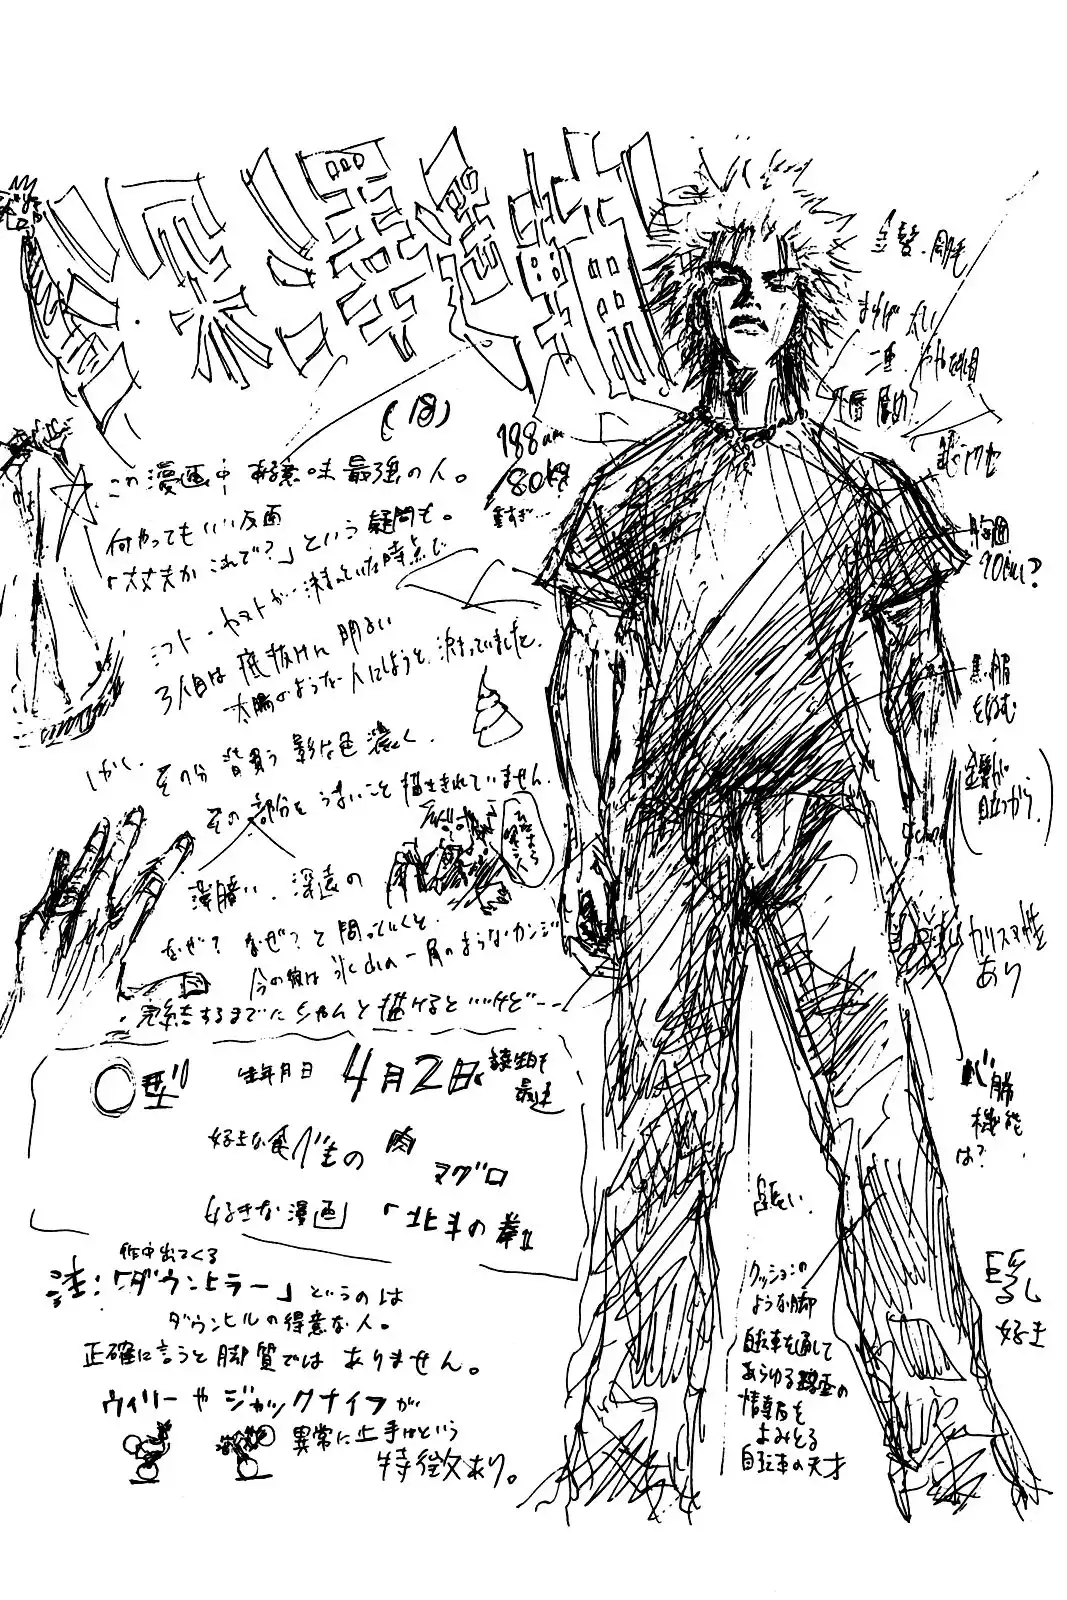 深澤遥輔
(18)
この漫画中 ある意味最強の人。
何やってもいい反面
「大丈夫か これで?」という疑問も。
シフト・ヤマトが 決まっていた時点で
3人目は 底抜けに 明るい
太陽のような人にしようと、決まっていました。
しかし、
その分 背負う 影は色 濃く、
その部分を うまいこと描ききれていません。
薄暗い、深遠の
なぜ? なぜ?と問っていくと、
今の彼は氷山の一角のようなカンジ
完結するまでに ちゃんと描けるといいけど…
O型 生年月日 4月2日 誕生日も最速
好きな食べもの 肉 マグロ
好きな漫画 「北斗の拳」
作中出てくる
注:「ダウンヒラー」というのは
ダウンヒルの得意な人。
正確に言うと脚質では ありません。
ウィリーやジャックナイフが
異常に上手という
特徴あり。
188cm
80kg
重すぎ…
金髪・剛毛
まゆげ 太い
二重
胸囲
90cm?
黒い服
を好む
(金髪が
目立つから)
カリスマ性
あり
機能
は?
長い
クッションの
ような脚
自転車を通して
あらゆる路面の
情報を
よみとる
自転車の天才
巨乳
好き